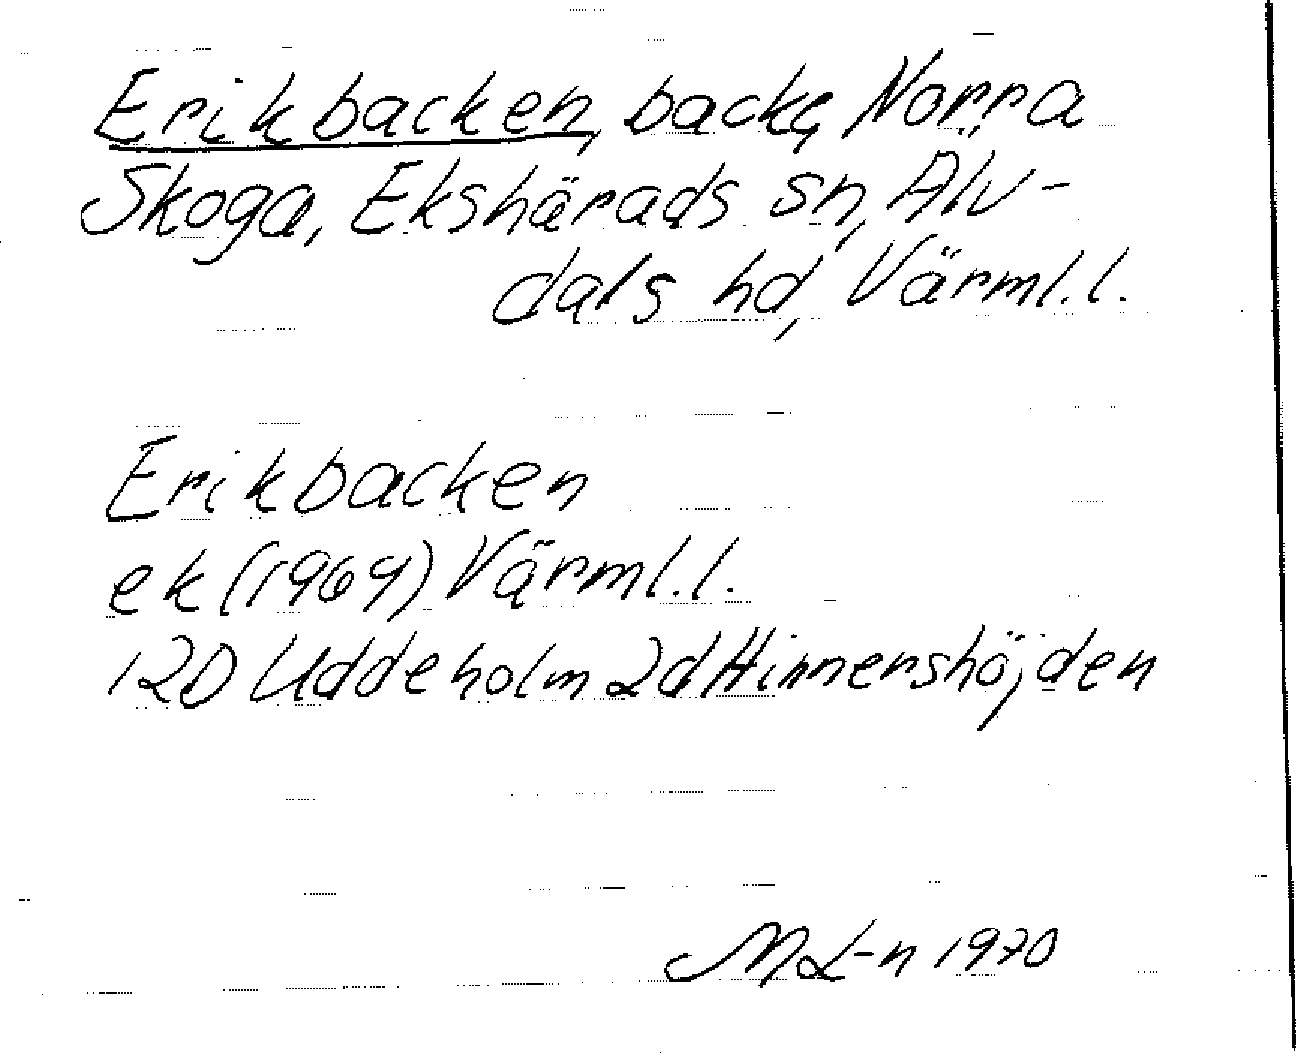 Erikbacken, backe, Norra
Skoga, Ekshärads sn, Älv-
dals hd, Värml.l.
Erikbacken
ek (1969) Värml.l.
12D Uddeholm 2d Hinnershöjden
ML-n 1970